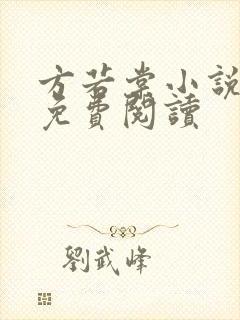 方若棠小說
免費閱讀
劉武峰